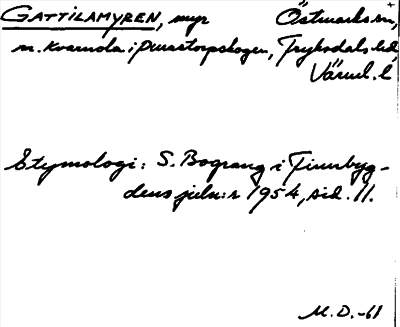 GATTILAMYREN, myr Östmarks sn,
n. Kvarnåla i Purastorpskogen, Fryksdals hd,
Värml. l.
Etymologi: S. Bograng i Finnbyg-
dens juln:r 1954, sid. 11.
M.D.-61